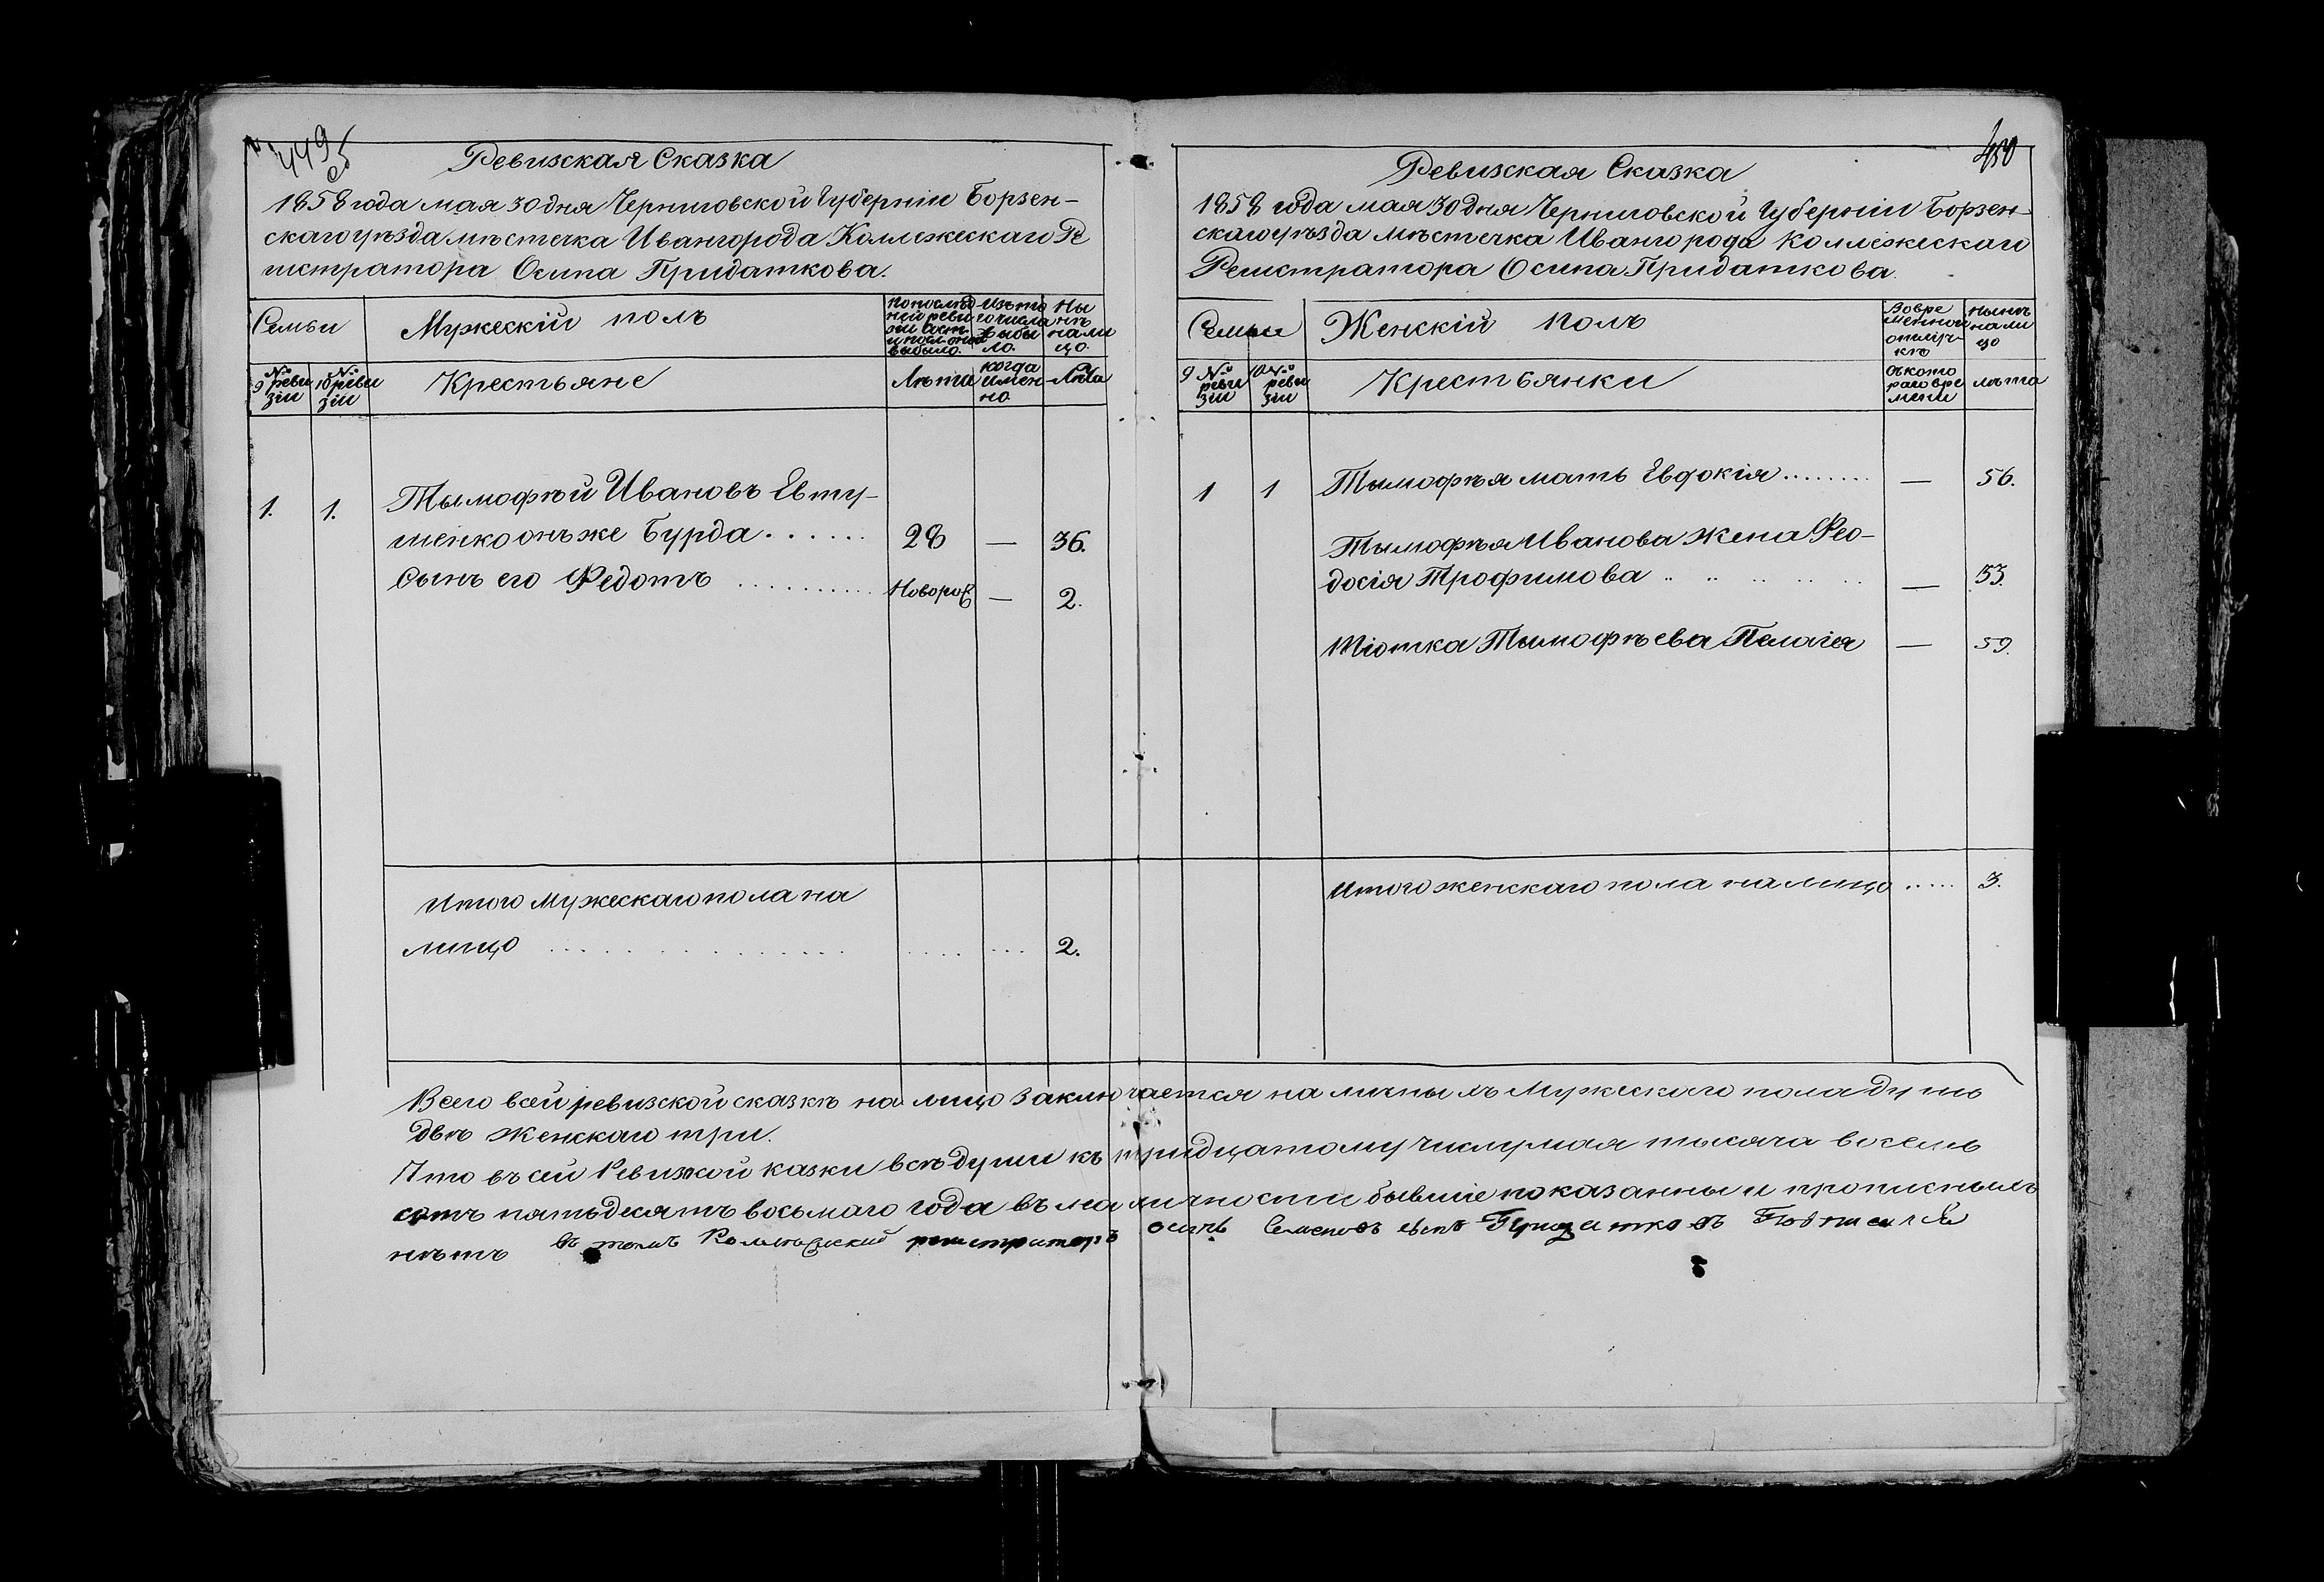 449
Ревизская Сказка
1858 года мая 30 дня Черниговской Губерніи Борзен-
скаго уѣзда мѣстечка Ивангорода Коллежескаго Ре
гистратора Осипа Придаткова.
Семьи
Мужескій полъ
по послѣд ней реви зіи сост. и посл. оной выбыло.
Изъ то го числа выбы ло.
Ны нѣ нали цо.
№ 9 реви зіи
№ 10 реви зіи
Крестьяне
Лѣта
когда имен но.
Лѣта
1. 1. Тымофѣй Ивановъ Евту-
шенко онъ же Бурда . . . . . . 28 — 36.
Сынъ его Федотъ . . . . . . . . . . . Новорож — 2.
Итого мужескаго пола на
лицо . . . . . . . . . . . . . . . 2.
450
Ревизская Сказка
1858 года мая 30 дня Черниговской Губерніи Борзен-
скаго уѣзда мѣстечка Ивангорода Коллежескаго
Регистратора Осипа Придаткова.
Семьи
Женскій Полъ
Во вре менной отлуч кѣ
нынѣ нали цо
9 № реви зіи
10 № реви зіи
Крестьянки
съ кото раго вре мени
лѣта
1 1 Тымофѣя мать Евдокія ........ — 56.
Тымофѣя Иванова жена Фео-
досія Трофимова .. .. .. .. .. — 33.
Тіотка Тымофѣева Пелагія — 59.
Итого женскаго пола на лицо ..... 3.
Всего в сей ревизской сказкѣ на лицо заключается наличныхъ Мужескаго пола душъ
двѣ женскаго три.
Что въ сей Ревизкой казки всѣ души къ тридцатому числу мая тысяча восемь
сотъ пятьдесятъ восьмаго года въ наличности бывшіе показанны и прописныхъ
нѣтъ въ томъ Коллежский регистраторъ осипъ Семеновъ сынъ Придатковъ Подписался